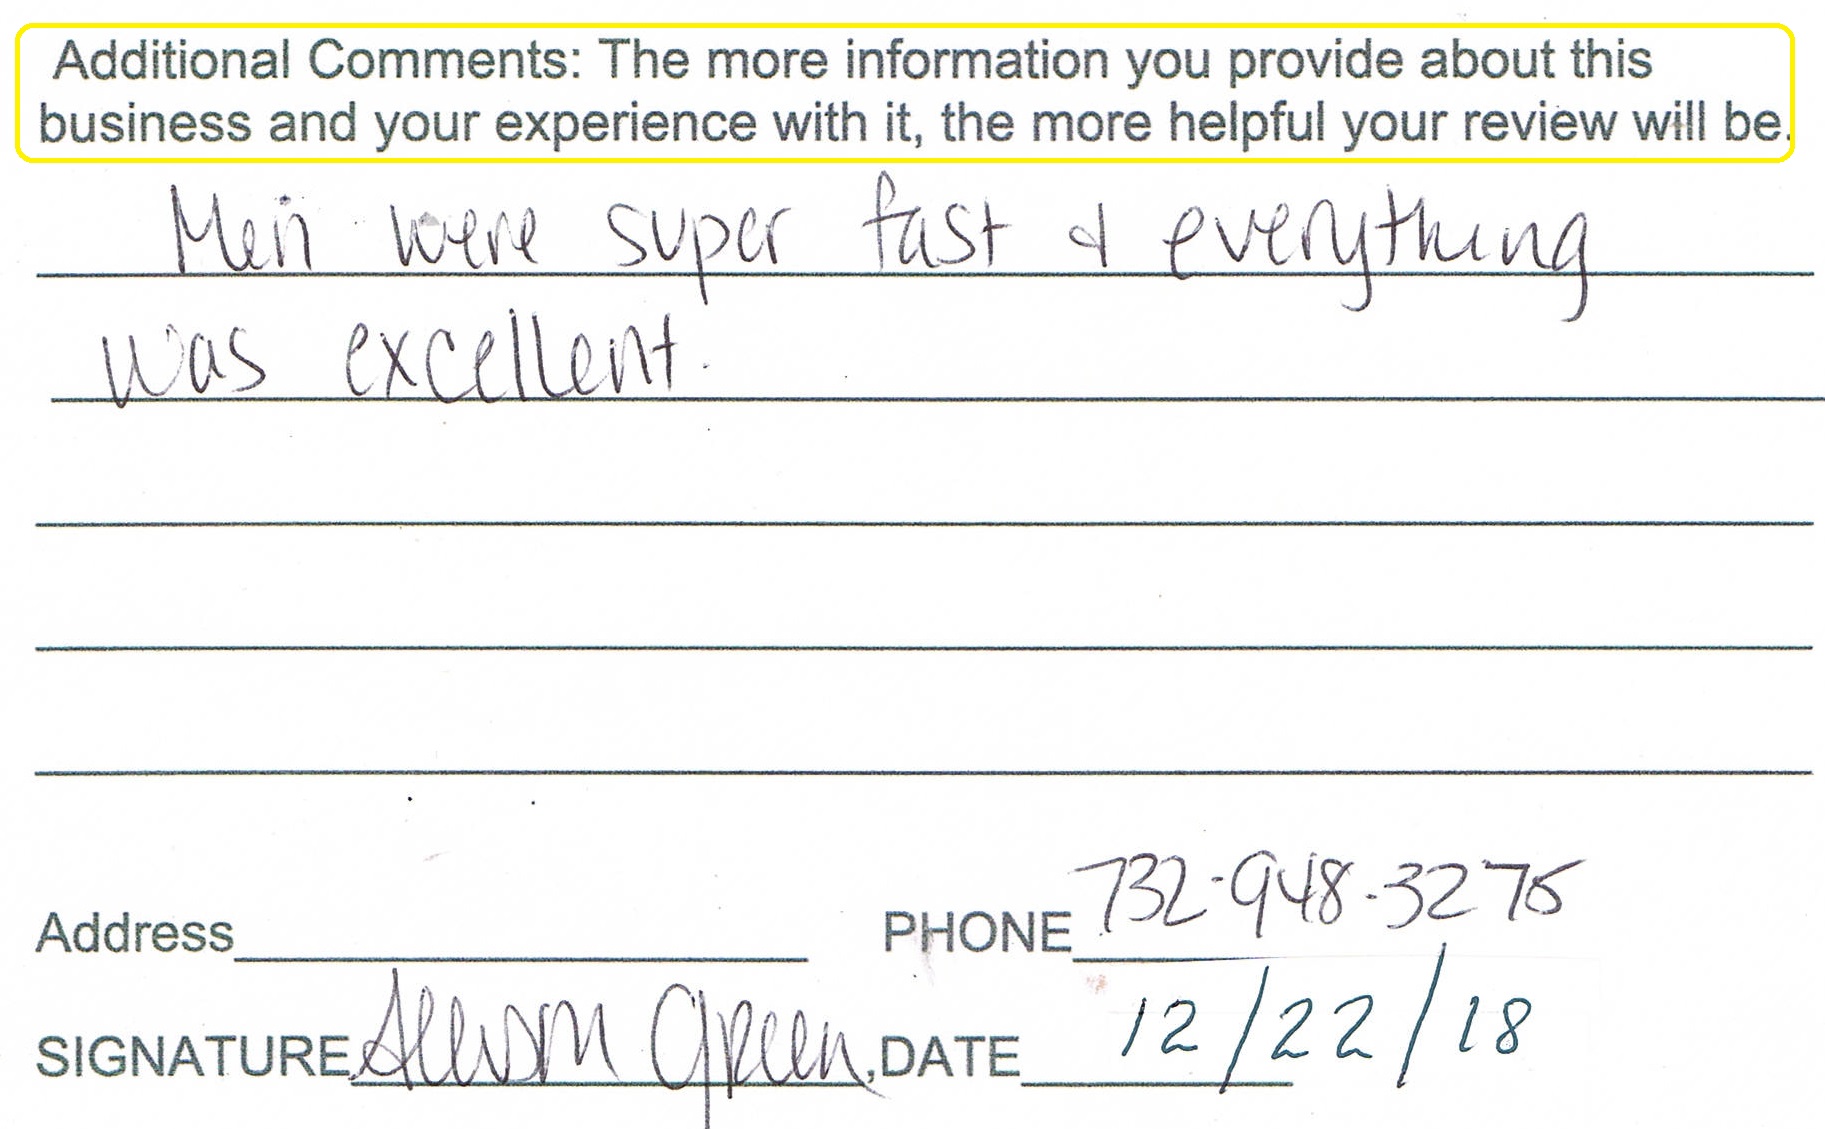 Additional Comments: The more information you provide about this
business and your experience with it, the more helpful your review will be.
Men were super fast & everything
was excellent.
Address PHONE 732-948-3275
SIGNATURE Allison Green, DATE 12/22/18